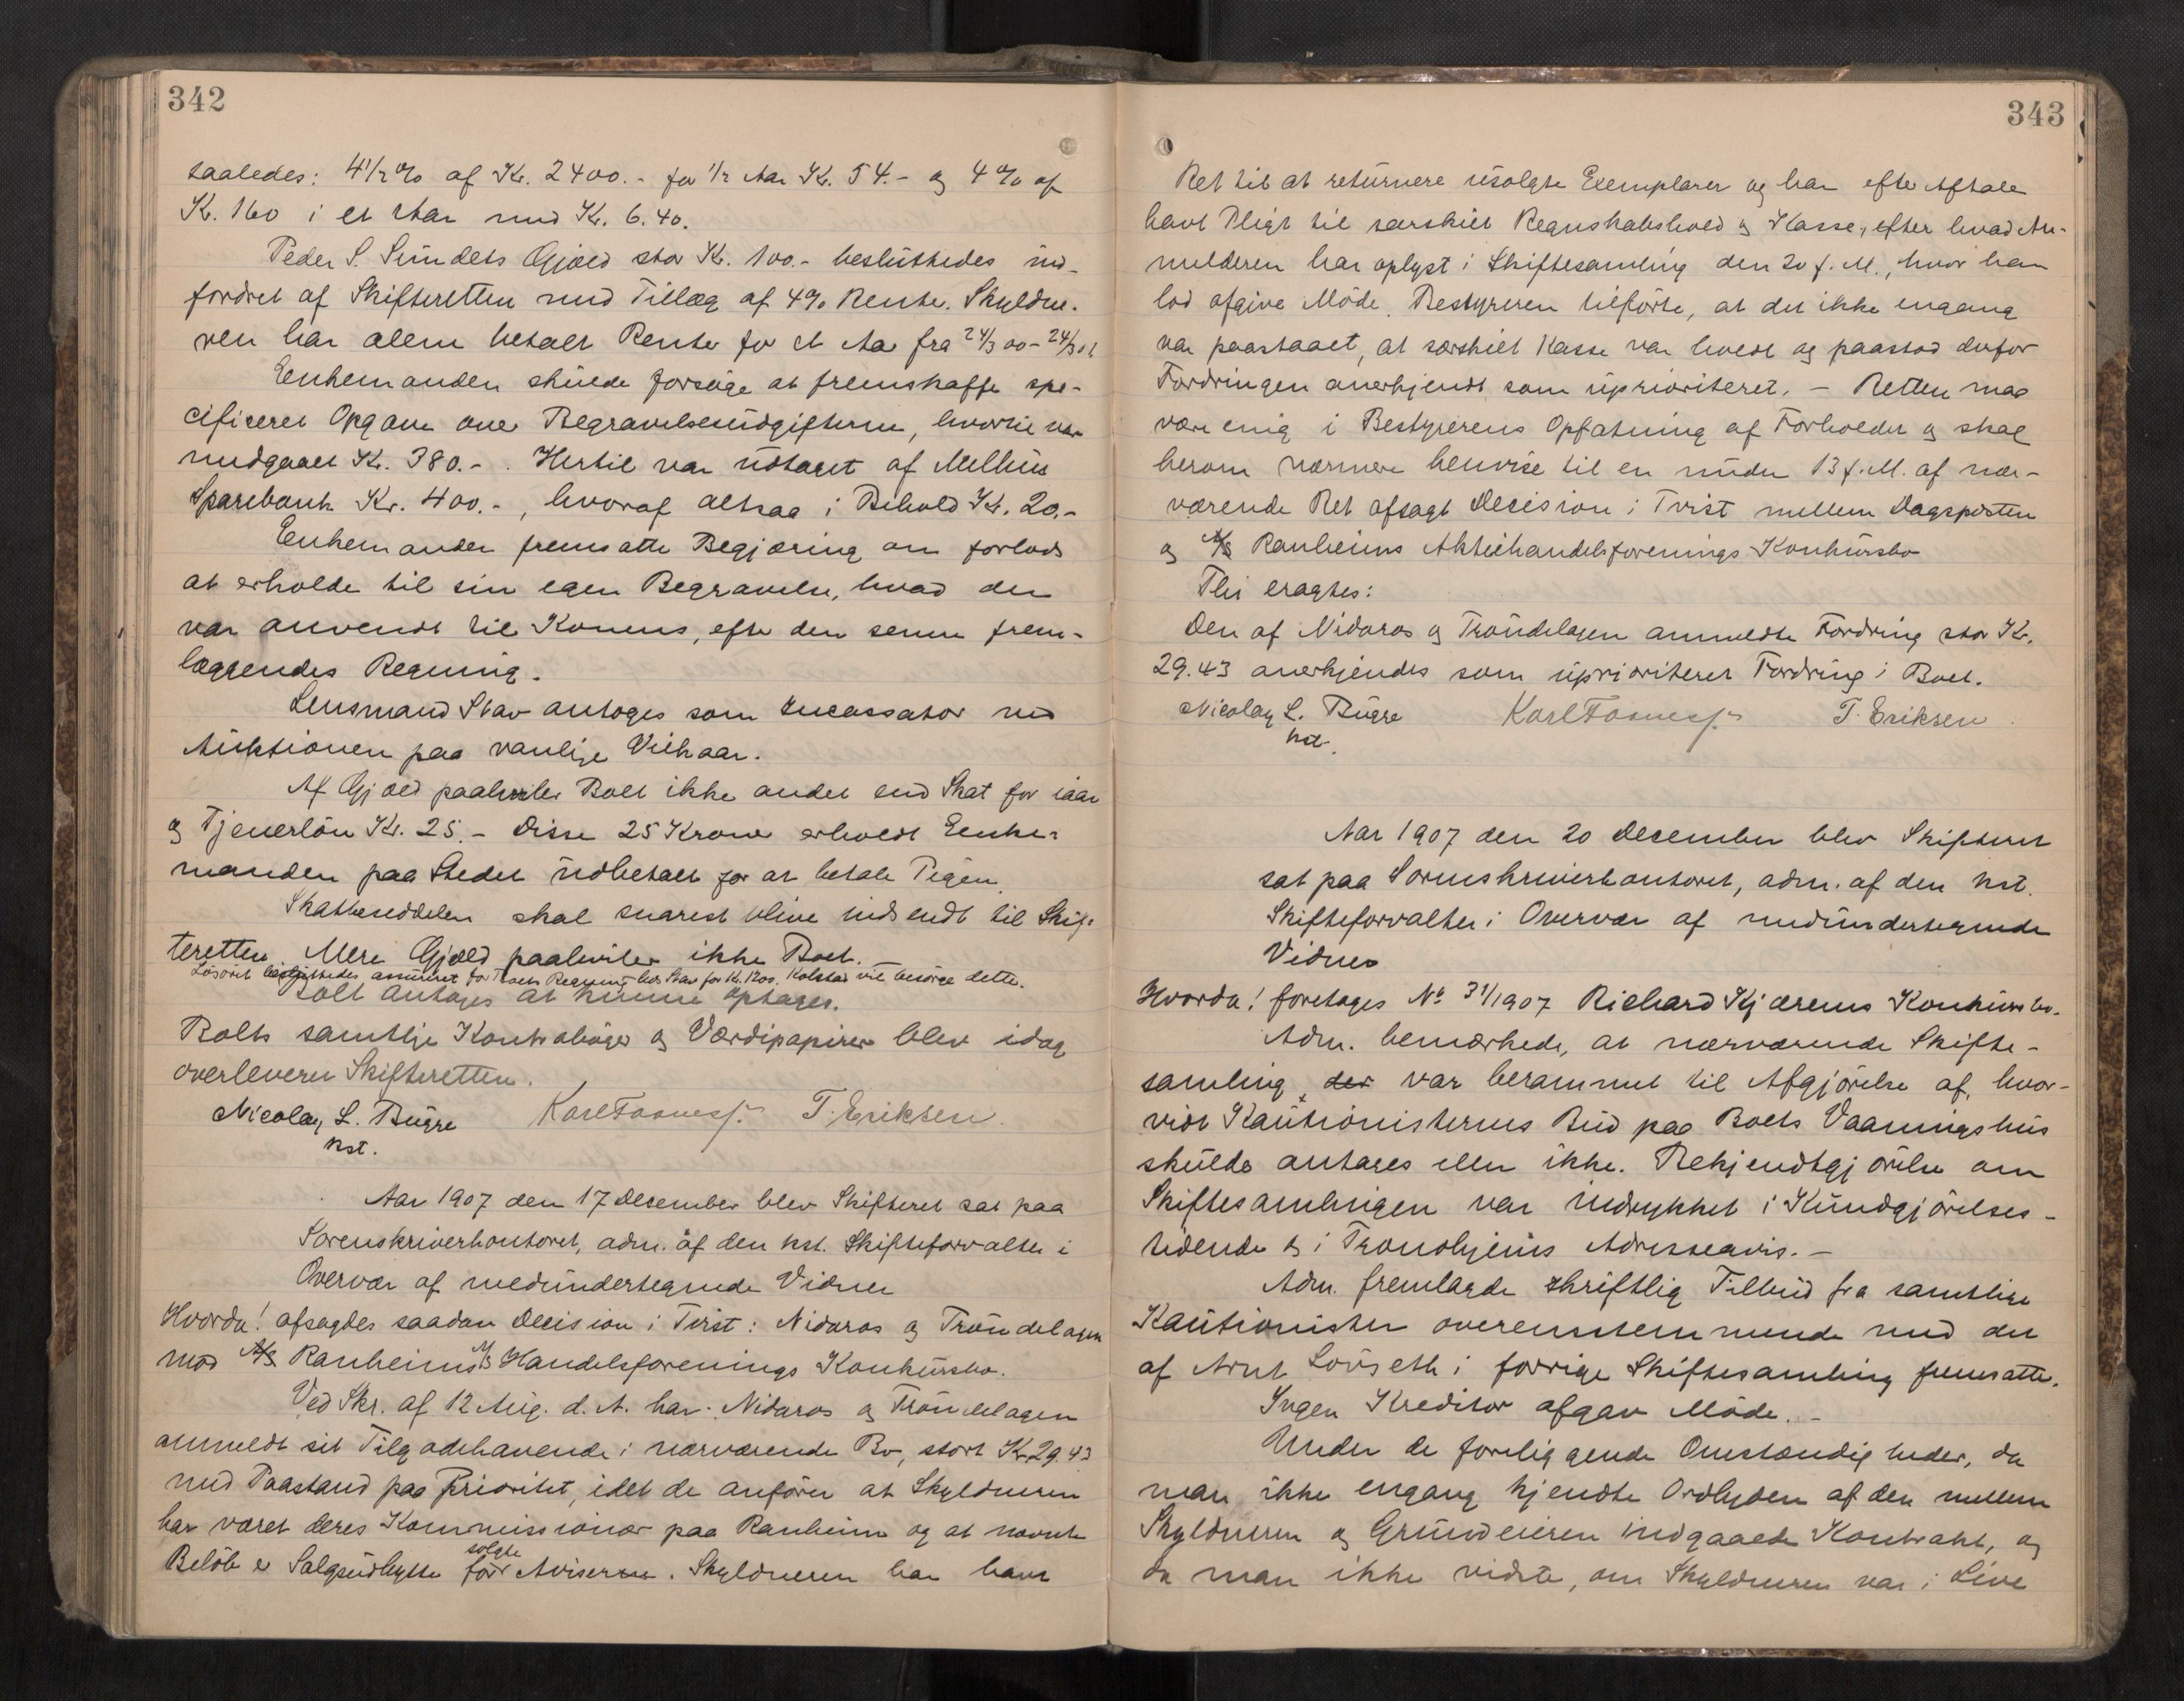 342
saaledes: 4 1/2 % af Kr. 2400.- for 1/2 Aar Kr. 54.- og 4 % af
Kr. 160 i et Aar med Kr. 6.40.
Peder S. Sundets Gjæld stor Kr. 100.- besluttedes ind-
fordret af Skifteretten med Tillæg af 4% Rente. Skyldne-
ren har alene betalt Rente for et Aar fra 24/3 00 - 24/3 01
Enkemanden skulde forsøge at fremskaffe spe-
cificeret Opgave over Begravelsesudgifterne, hvortil var
medgaaet Kr. 380.- . Hertil var udtaget af Melhus
Sparebank Kr. 400.-, hvoraf altsaa i Behold Kr. 20.-
Enkemanden fremsatte Begjæring om forlods
at erholde til sin egen Begravelse, hvad der
var anvendt til Konens, efter den senere frem-
læggendes Regning.
Lensmand Stav antoges som Incassator ved
Auktionen paa vanlige Vilkaar.
Af Gjæld paahviler Boet ikke andet end Skat for iaar
og Tjenerløn Kr. 25.- Disse 25 Kroner erholdt Enke-
manden paa Stedet udbetalt for at betale Pigen.
Skatteseddelen skal snarest blive indsendt til Skif-
teretten. Mere Gjæld paahviler ikke Boet.
Løsøret besluttedes assureret for Boets Regning hos Stav for Kr. 1200. Kolstad vil besørge dette.
solt antages at kunne optages.
Boets samtlige Kontrabøger og Værdipapirer blev idag
overleveret Skifteretten.
Nicolay L. Bugge Karl Foosnes jr. T. Eriksen.
kst.
Aar 1907 den 17 December blev Skifteret sat paa
Sorenskriverkontoret, adm. af den kst. Skifteforvalter i
Overvær af medundertegnede Vidner
Hvorda! afsagdes saadan Decision i Tvist: Nidaros og Trøndelagen
mod A/S Ranheims A/S Handelsforenings Konkursbo.
Ved Skr. af 12 Aug. d. A. har Nidaros og Trøndelagen
anmeldt sit Tilgodehavende i nærværende Bo, stort Kr 29.43
med Paastand paa Prioritet, idet de anfører at Skyldneren
har været deres Kommissionær paa Ranheim og at nævnte
Beløb er Salgsudbytte for solgte Aviser. Skyldneren har havt
343
Ret til at returnere usolgte Exemplarer og har efter Aftale
havt Pligt til særskilt Regnskabshold og Kasse, efter hvad An-
melderen har oplyst i Skiftesamling den 20 f. M., hvor han
lod afgive Møde. Bestyreren tilførte, at det ikke engang
var paastaaet, at særskilt Kasse var holdt og paastod derfor
Fordringen anerkjendt som uprioriteret. - Retten maa
være enig i Bestyrerens Opfatning af Forholdet og skal
herom nærmere henvise til en under 13 f. M. af nær-
værende Ret afsagt Decision i Tvist mellem Dagsposten
og A/S Ranheims Aktiehandelsforenings Konkursbo
Thi eragtes:
Den af Nidaros og Trøndelagen anmeldte Fordring stor Kr.
29.43 anerkjendes som uprioriteret Fordring i Boet.
Nicolay L. Bugge Karl Foosnes jr. T. Eriksen.
kst.
Aar 1907 den 20 December blev Skifteret
sat paa Sorenskriverkontoret, adm. af den kst.
Skifteforvalter i Overvær af medundertegnede
Vidner
Hvorda! foretoges No 31/1907 Richard Kjærems Konkursbo.
Adm. bemærkede, at nærværende Skifte-
samling der var berammet til Afgjørelse af, hvor-
vidt Kautionisternes Bud paa Boets Vaaningshus
skulde antages eller ikke. Bekjendtgjørelse om
Skiftesamlingen var indrykket i Kundgjørelses-
tidende og i Trondhjems Adresseavis. -
Adm. fremlagde skriftlig Tilbud fra samtlige
Kautionister overensstemmende med det
af Arnt Lovseth i forrige Skiftesamling fremsatte.
Ingen Kreditor afgav Møde. -
Under de foreliggende Omstændigheder, da
man ikke engang kjendte Ordlyden af den mellem
Skyldneren og Grundeieren indgaaede Kontrakt, og
da man ikke vidste, om Skyldneren var i Live